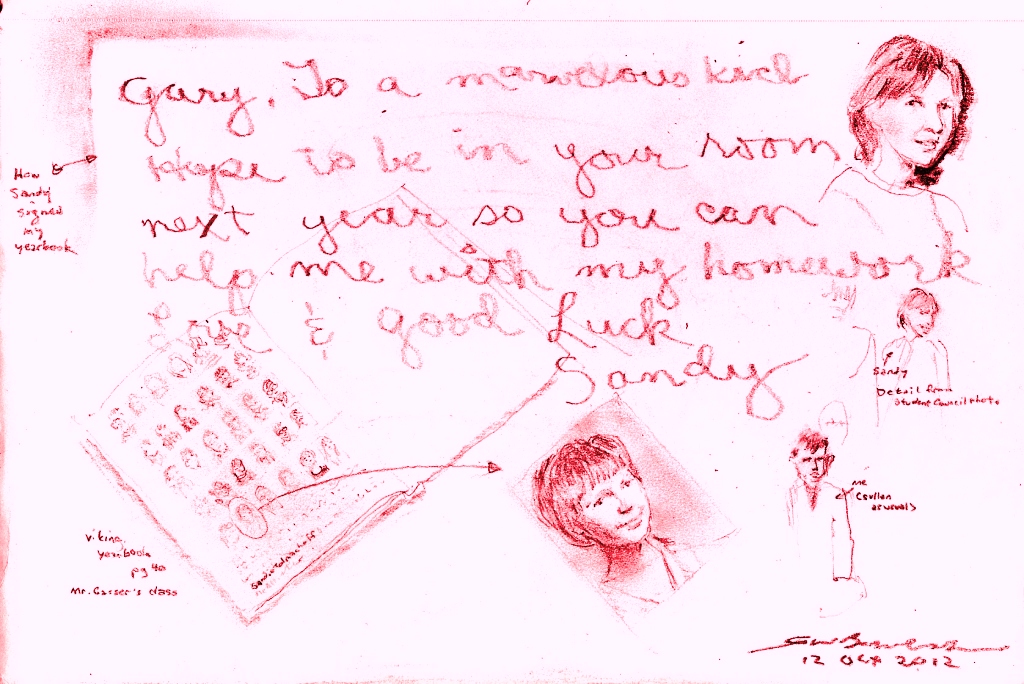 Gary, To a marvelous kid
Hope to be in your room
next year so you can
help me with my homework
Love & good Luck
Sandy
How
Sandy
signed
my
yearbook
Sandy
Detail from
Student Council photo
me
(sullen
as usual)
Viking
Yearbook
pg 40
Mr. Garser's class
12 Oct 2012